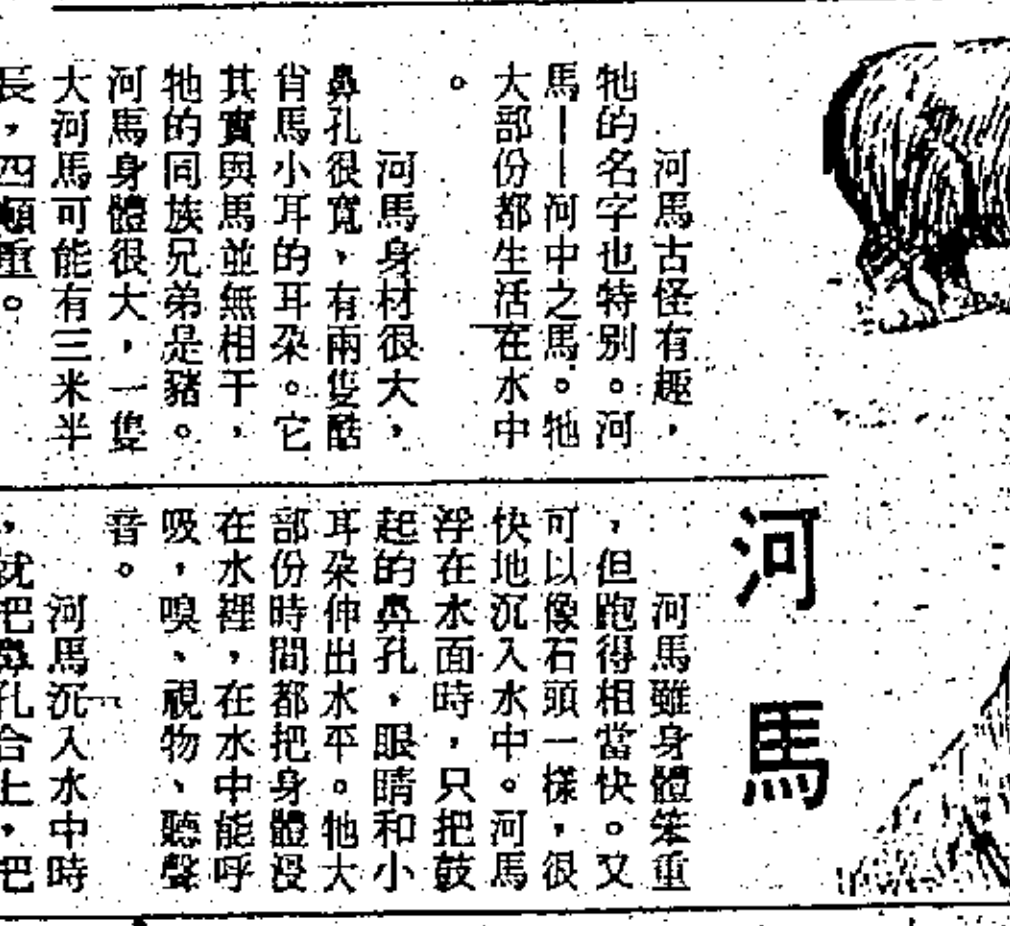 河馬
河馬古怪有趣，
牠的名字也特別。河
馬——河中之馬。牠
大部份都生活在水中
。
河馬身材很大，
鼻孔很寬、有兩隻酷
肖馬小耳的耳朶。它
其實與馬並無相干，
牠的同族兄弟是豬。
河馬身體很大，一隻
大河馬可能有三米半
長，四噸重。
河馬雖身體笨重
，但跑得相當快。又
可以像石頭一樣，很
快地沉入水中。河馬
浮在水面時，只把鼓
起的鼻孔，眼睛和小
耳朶伸出水平。牠大
部份時間都把身體浸
在水裡，在水中能呼
吸，嗅、視物、聽聲
音。
河馬沉入水中時
，就把鼻孔合上，把